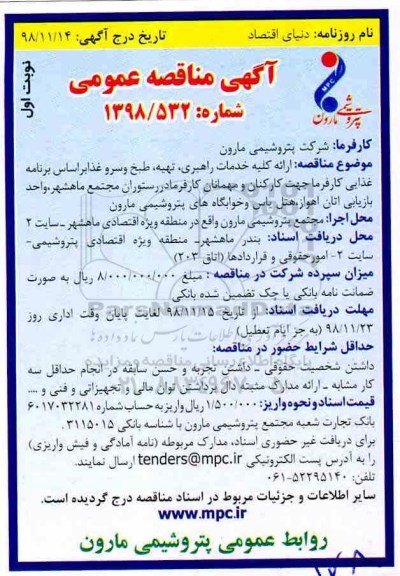 نام روزنامه: دنیای اقتصاد
تاریخ درج آگهی: ۹۸/۱۱/۱۴
نوبت اول
آگهی مناقصه عمومی
شماره: ۱۳۹۸/۵۳۲
MPC
پتروشیمی مارون
کارفرما: شرکت پتروشیمی مارون
موضوع مناقصه: ارائه کلیه خدمات راهبری، تهیه، طبخ وسرو غذابراساس برنامه
غذایی کارفرما جهت کارکنان و مهمانان کارفرمادررستوران مجتمع ماهشهر،واحد
بازیابی اتان اهواز،هتل یاس وخوابگاه های پتروشیمی مارون
محل اجرا: مجتمع پتروشیمی مارون واقع در منطقه ویژه اقتصادی ماهشهر ـ سایت ۲
محل دریافت اسناد: بندر ماهشهر- منطقه ویژه اقتصادی پتروشیمی-
سایت ۲- امورحقوقی و قراردادها (اتاق ۲۰۳)
میزان سپرده شرکت در مناقصه : مبلغ ۸/۰۰۰/۰۰۰/۰۰۰ ریال به صورت
ضمانت نامه بانکی یا چک تضمین شده بانکی
مهلت دریافت اسناد: از تاریخ ۹۸/۱۱/۱۵ لغایت پایان وقت اداری روز
۹۸/۱۱/۲۳ (به جز ایام تعطیل)
حداقل شرایط حضور در مناقصه:
داشتن شخصیت حقوقی ـ داشتن تجربه و حسن سابقه در انجام حداقل سه
کار مشابه ـ ارائه مدارک مثبته دال برداشتن توان مالی و تجهیزاتی و فنی و ....
قیمت اسناد و نحوه واریز: ۱/۵۰۰/۰۰۰ ریال واریز به حساب شماره ۶۰۱۷۰۳۲۲۸۱
بانک تجارت شعبه مجتمع پتروشیمی مارون با شناسه بانکی ۳۱۱۵۰۱۵.
برای دریافت غیر حضوری اسناد، مدارک مربوطه (نامه آمادگی و فیش واریزی)
را به آدرس پست الکترونیکی tenders@mpc.ir ارسال نمایند.
تلفن: ۵۲۲۹۵۱۴۰-۰۶۱
سایر اطلاعات و جزئیات مربوط در اسناد مناقصه درج گردیده است.
www.mpc.ir
روابط عمومی پتروشیمی مارون